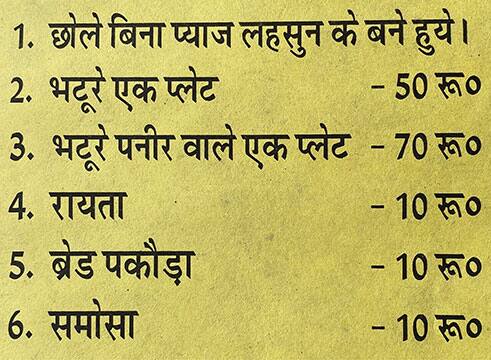 1. छोले बिना प्याज लहसुन के बने हुये।
2. भटूरे एक प्लेट - 50 रू०
3. भटूरे पनीर वाले एक प्लेट - 70 रू०
4. रायता - 10 रू०
5. ब्रेड पकौड़ा - 10 रू०
6. समोसा - 10 रू०